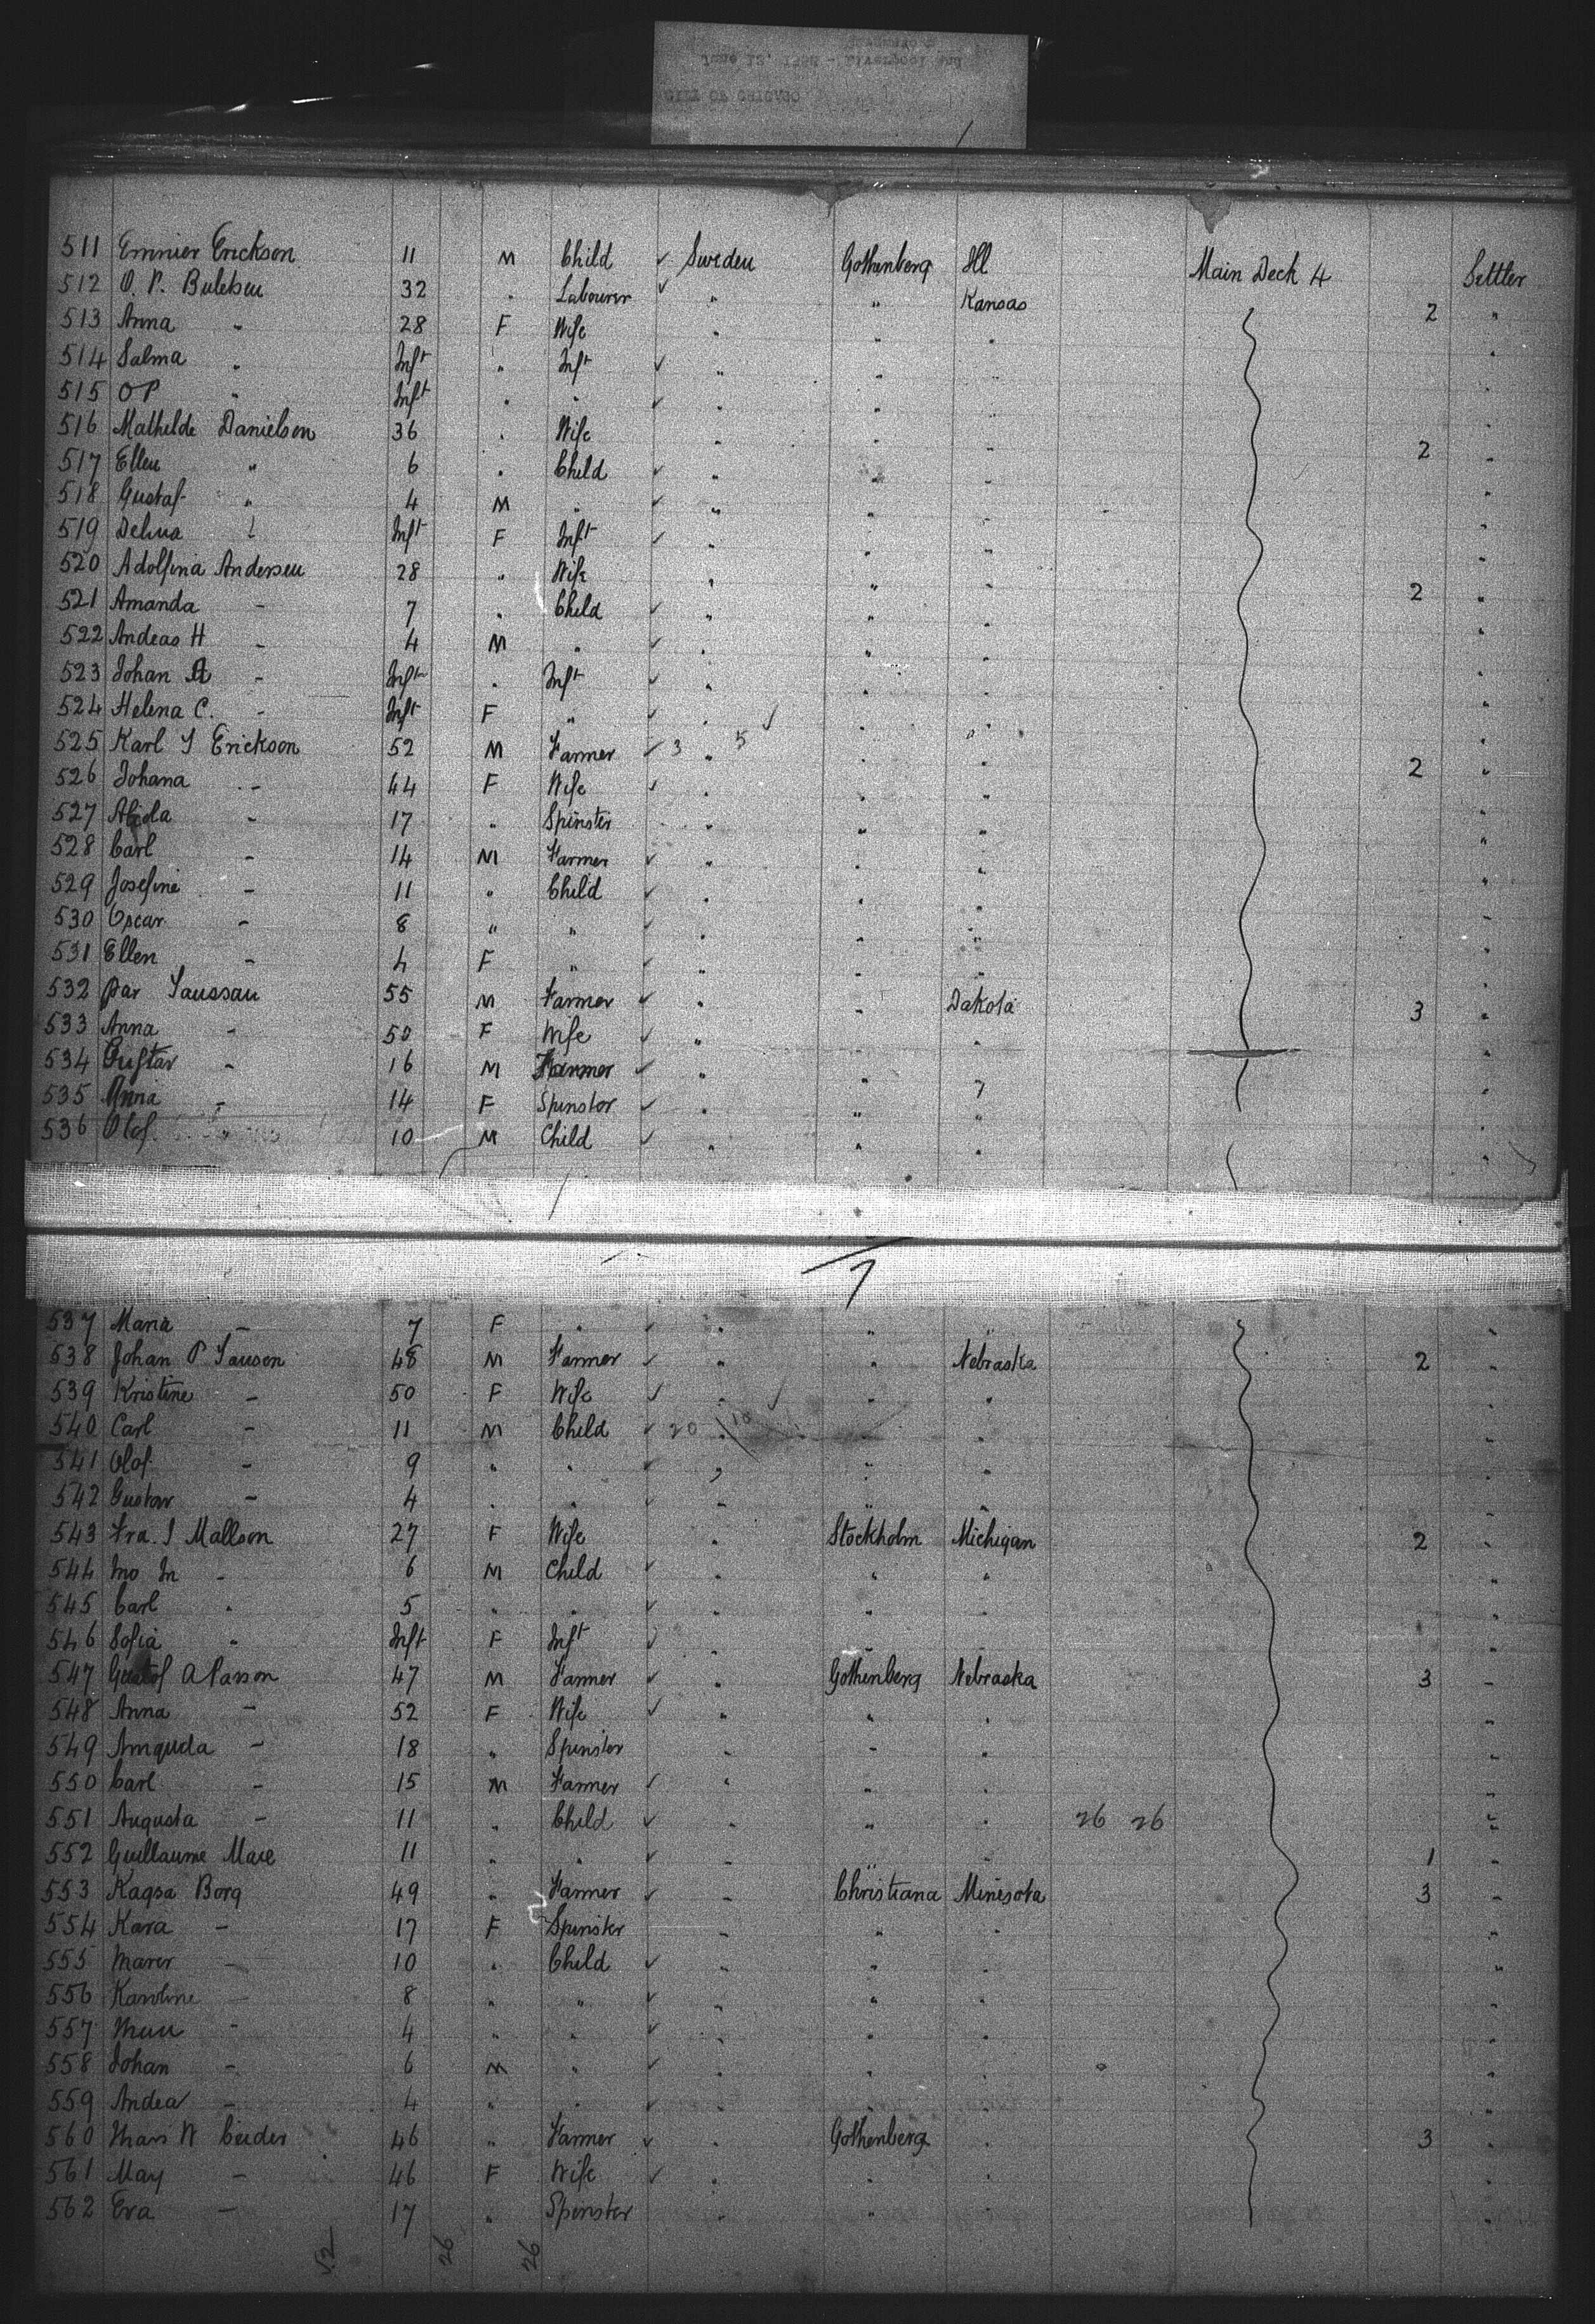 CITY OF CHICAGO
511 Emnier Erickson 11 M Child ✓ Sweden Gothenberg Ill Main Deck 4 Settler
512 O. P. 32 " Labourer ✓ " " Kansas 2 "
513 Anna " 28 F Wife " " " "
514 Salma " Inft " Inft ✓ " " " "
515 O P " Inft " " ✓ " " " "
516 Mathilde Danielson 36 " Wife " " " 2 "
517 Ellen " 6 " Child ✓ " " " "
518 Gustaf " 4 M " ✓ " " " "
519 Delma " Inft F Inft ✓ " " " "
520 Adolfina Andersen 28 " Wife " " " 2 "
521 Amanda - 7 " Child ✓ " " " "
522 Andeas H - 4 M " ✓ " " " "
523 Johan A - Inft " Inft ✓ " " " "
524 Helena C. - Inft F " ✓ " " " "
525 Karl S Erickson 52 M Farmer ✓ 3 " 5 " " 2 "
526 Johana - 44 F Wife ✓ " " " "
527 Alida - 17 " Spinster " " " "
528 Carl - 14 M Farmer ✓ " " " "
529 Josefine - 11 " Child ✓ " " " "
530 Oscar - 8 " " ✓ " " " "
531 Ellen - 4 F " ✓ " " " "
532 Par 55 M Farmer ✓ " " Dakota 3 "
533 Anna - 50 F Wife ✓ " " " "
534 Gustav - 16 M Farmer ✓ " " " "
535 Anna - 14 F Spinster ✓ " " " "
536 Olof " 10 M Child ✓ " " " "
7
537 Maria - 7 F " ✓ " " " "
538 Johan P 48 M Farmer ✓ " " Nebraska 2 "
539 Kristine - 50 F Wife ✓ " " " "
540 Carl - 11 M Child ✓ 20 " " " "
541 Olof - 9 " " ✓ " " " "
542 Gustav - 4 " " ✓ " " " "
543 Fra. S Mallson 27 F Wife " Stockholm Michigan 2 "
544 - 6 M Child ✓ " " " "
545 Carl " 5 " " ✓ " " " "
546 Sofia " Inft F Inft ✓ " " " "
547 Gustof A Parson 47 M Farmer ✓ " Gothenberg Nebraska 3 -
548 Anna - 52 F Wife ✓ " " " "
549 Amquda - 18 " Spinster " " " "
550 Carl - 15 M Farmer ✓ " " " "
551 Augusta - 11 " Child ✓ " " " 26 26 "
552 Guillaume Mace 11 " " ✓ " " 1 "
553 Kaqsa Borg 49 " Farmer ✓ " Christiana Minesota 3 -
554 Kara - 17 F Spinster " " " "
555 Marer - 10 " Child ✓ " " " "
556 Karoline - 8 " " ✓ " " " "
557 - 4 " " ✓ " " " "
558 Johan - 6 M " ✓ " " " "
559 Andea - 4 " " ✓ " " " "
560 46 " Farmer ✓ " Gothenberg " 3 "
561 May - 46 F Wife ✓ " " " "
562 Eva - 17 " Spinster " " " "
52 26 26